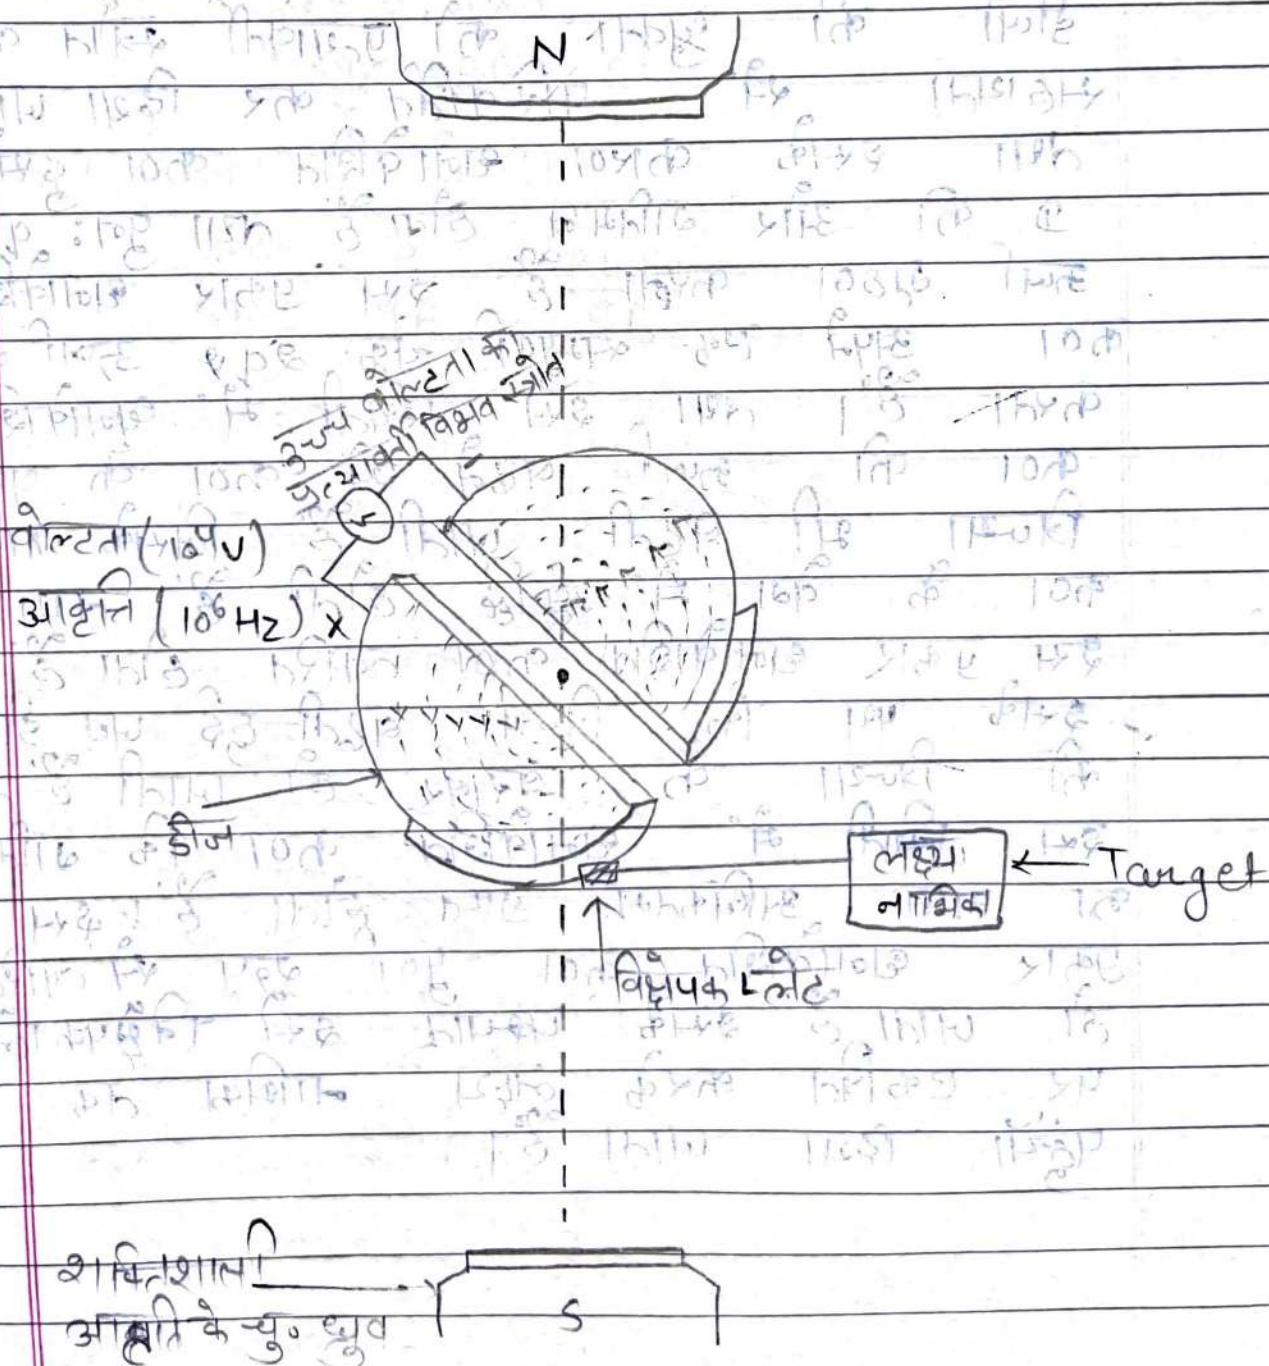 N
उच्च वोल्टता का
प्रत्यावर्ती विभव स्त्रोत
वोल्टता (10⁴V)
आवृत्ति (10⁶ Hz) x
डीज
लक्ष्य
नाभिक
← Target
विक्षेपक प्लेट
शक्तिशाली
के चु. ध्रुव
S